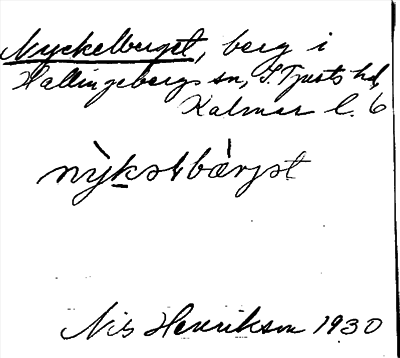 Nyckelberget, berg i
Hallingebergs sn, S. Tjusts hd,
Kalmar l. 6
Nils Henrikson 1930